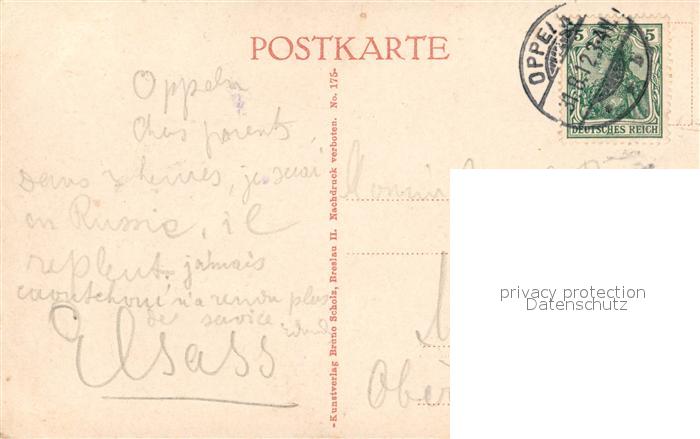 POSTKARTE
OPPELN
5 5
DEUTSCHES REICH
Oppeln
chers parents,
Dans 2 heures, je serai
en Russie, il
repleut. jamais
caoutchouc n'a rendu plus
de service
Elsass
-Kunstverlag Bruno Scholz, Breslau II. Nachdruck verboten. No. 175-
Monsieur
privacy protection
Datenschutz